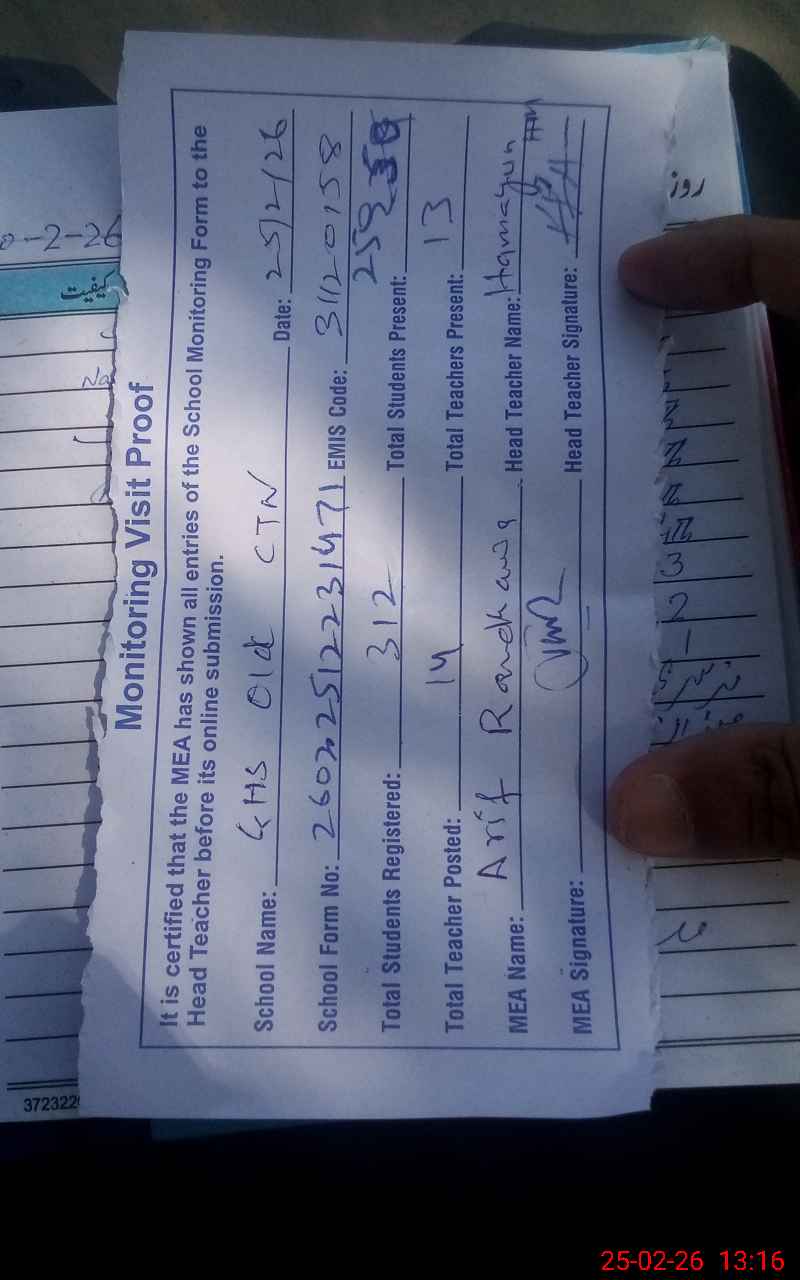 Monitoring Visit Proof
It is certified that the MEA has shown all entries of the School Monitoring Form to the
Head Teacher before its online submission.
School Name: GHS Old CTN Date: 25/2/26
School Form No: EMIS Code: 31120158
Total Students Registered: 312 Total Students Present: 259
Total Teacher Posted: 14 Total Teachers Present: 13
MEA Name: Arif Randhawa Head Teacher Name: Hamayun
MEA Signature: Head Teacher Signature:
-2-26
کیفیت
روز
3
2
1
372322
25-02-26 13:16